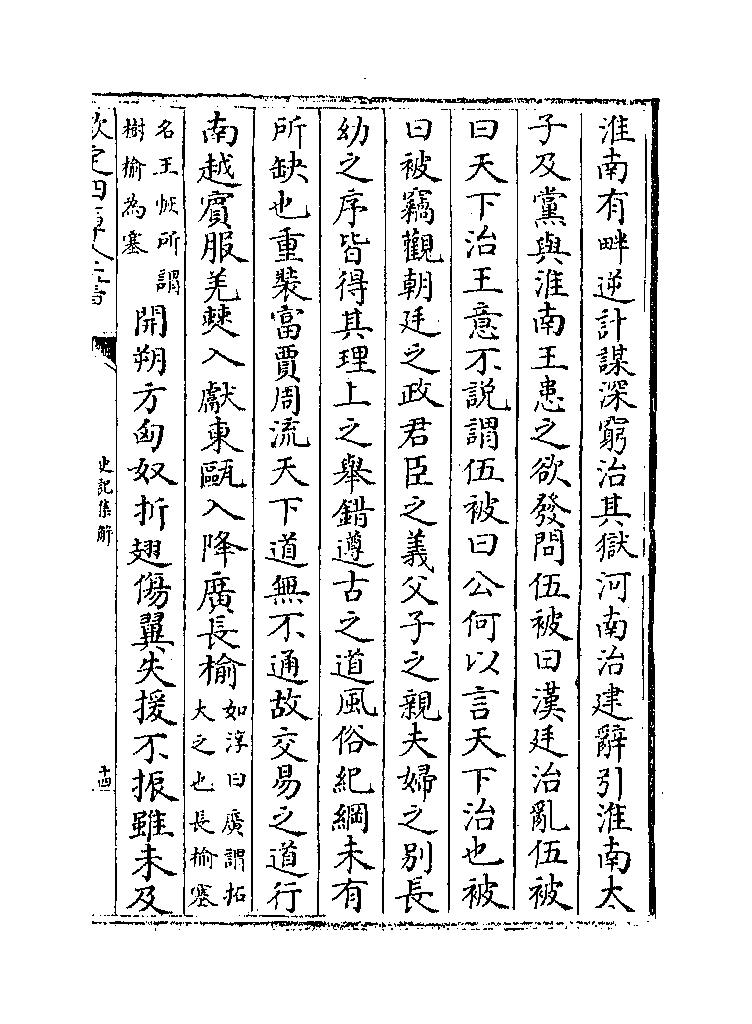 淮南有畔逆計謀深窮治其獄河南治建辭引淮南太
子及黨與淮南王患之欲發問伍被曰漢廷治亂伍被
曰天下治王意不說謂伍被曰公何以言天下治也被
曰被竊觀朝廷之政君臣之義父子之親夫婦之别長
幼之序皆得其理上之舉錯遵古之道風俗紀綱未有
所缺也重装富賈周流天下道無不通故交易之道行
南越賓服羌僰入獻東甌入降廣長榆如淳曰廣謂拓大之也長榆塞
名王恢所謂樹榆為塞開朔方匈奴折翅傷翼失援不振雖未及
欽定四庫全書
史記集解
十四